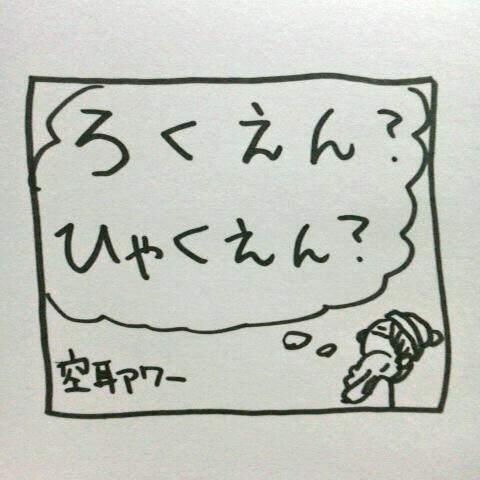 ろくえん?
ひゃくえん?
空耳アワー